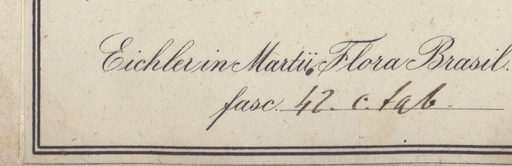 Eichler in Martii, Flora Brasil.
fasc. 42. c. tab.